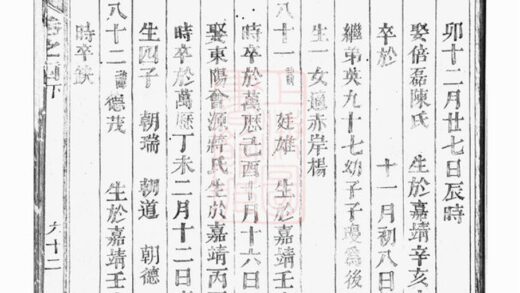 卯十二月廿七日辰時
娶倍磊陳氏 生於嘉靖辛亥
卒於 十一月初八日
繼弟英九十七幼子子瓊為後
生一女適赤岸楊
八十一 諱 廷雄 生於嘉靖壬
時卒於萬曆己酉十月十六日
娶東陽會源蔣氏生於嘉靖丙
時卒於萬曆丁未二月十二日
生四子 朝瑞 朝道 朝德
八十二 諱 德茂 生於嘉靖壬
時卒缺
卷之
下
九十二